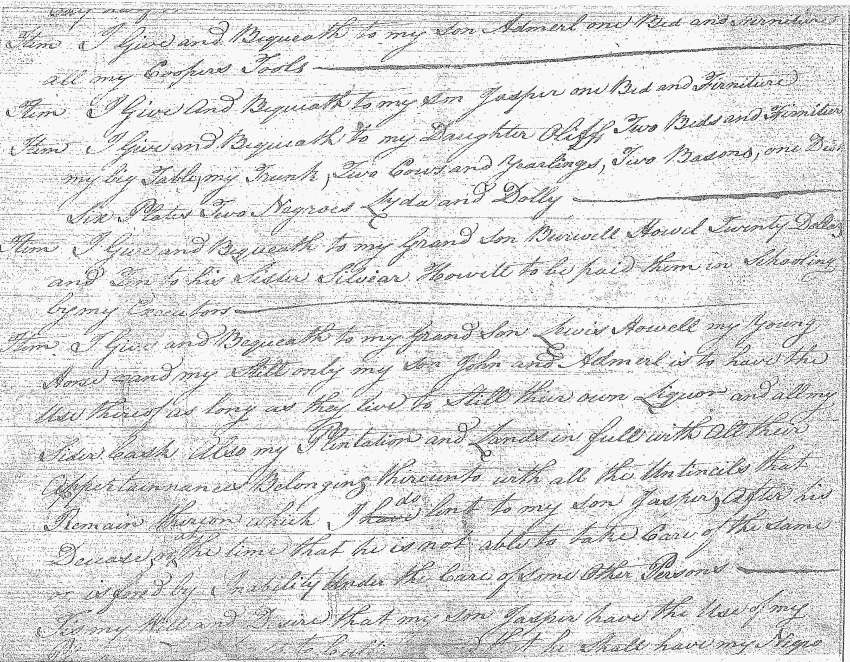 Item I Give and Bequeath to my son Admerl one Bed and Furniture
all my Coopers Tools
Item I Give And Bequeath to my son Jasper one Bed and Firniture
Item I Give and Bequeath to my Daughter Oliff Two Beds and Firniture
my big Table, my Trunk, Two Cows and Yearlings, Two Basons, one Dish
Six Plates Two Negroes Lyda and Dolly
Item I Give and Bequeath to my Grand Son Burwell Howel Twenty Dollars
and Ten to his Sister Silvear Howell to be paid them in Schooling
by my Executors
Item I Give and Bequeath to my Grand Son Lewis Howell my Young
Horse and my Still only my son John and Admerl is to have the
Use thereof as long as they live to Still their own Liquor and all my
Sider Cask Also my Plintation and Lands in full with All their
Appertainnances Belonging thereunto with all the Untincils that
Remain thereon which I have do lent to my son Jasper, After his
Decease, or at the time that he is not able to take Care of the same
or is forcd by Inability Under the Care of Some Other Persons
Tis my Will and Desire that my son Jasper have the Use of my
that he Shall have my Negro